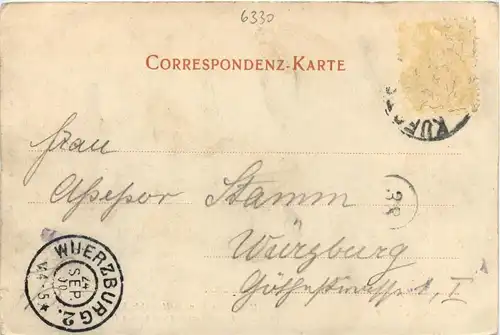 6330
CORRESPONDENZ-KARTE
KUFS
Frau
Assessor Stamm
38
Würzburg
Göthestrasse 1, I
WUERZBURG 2.
24
SEP
00
V.4-5